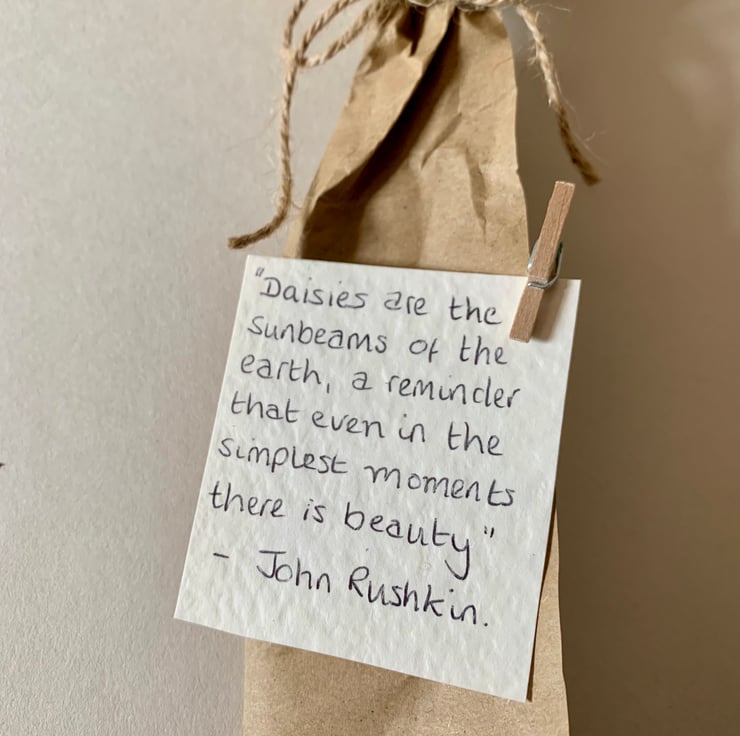 "Daisies are the
sunbeams of the
earth, a reminder
that even in the
simplest moments
there is beauty"
- John Rushkin.